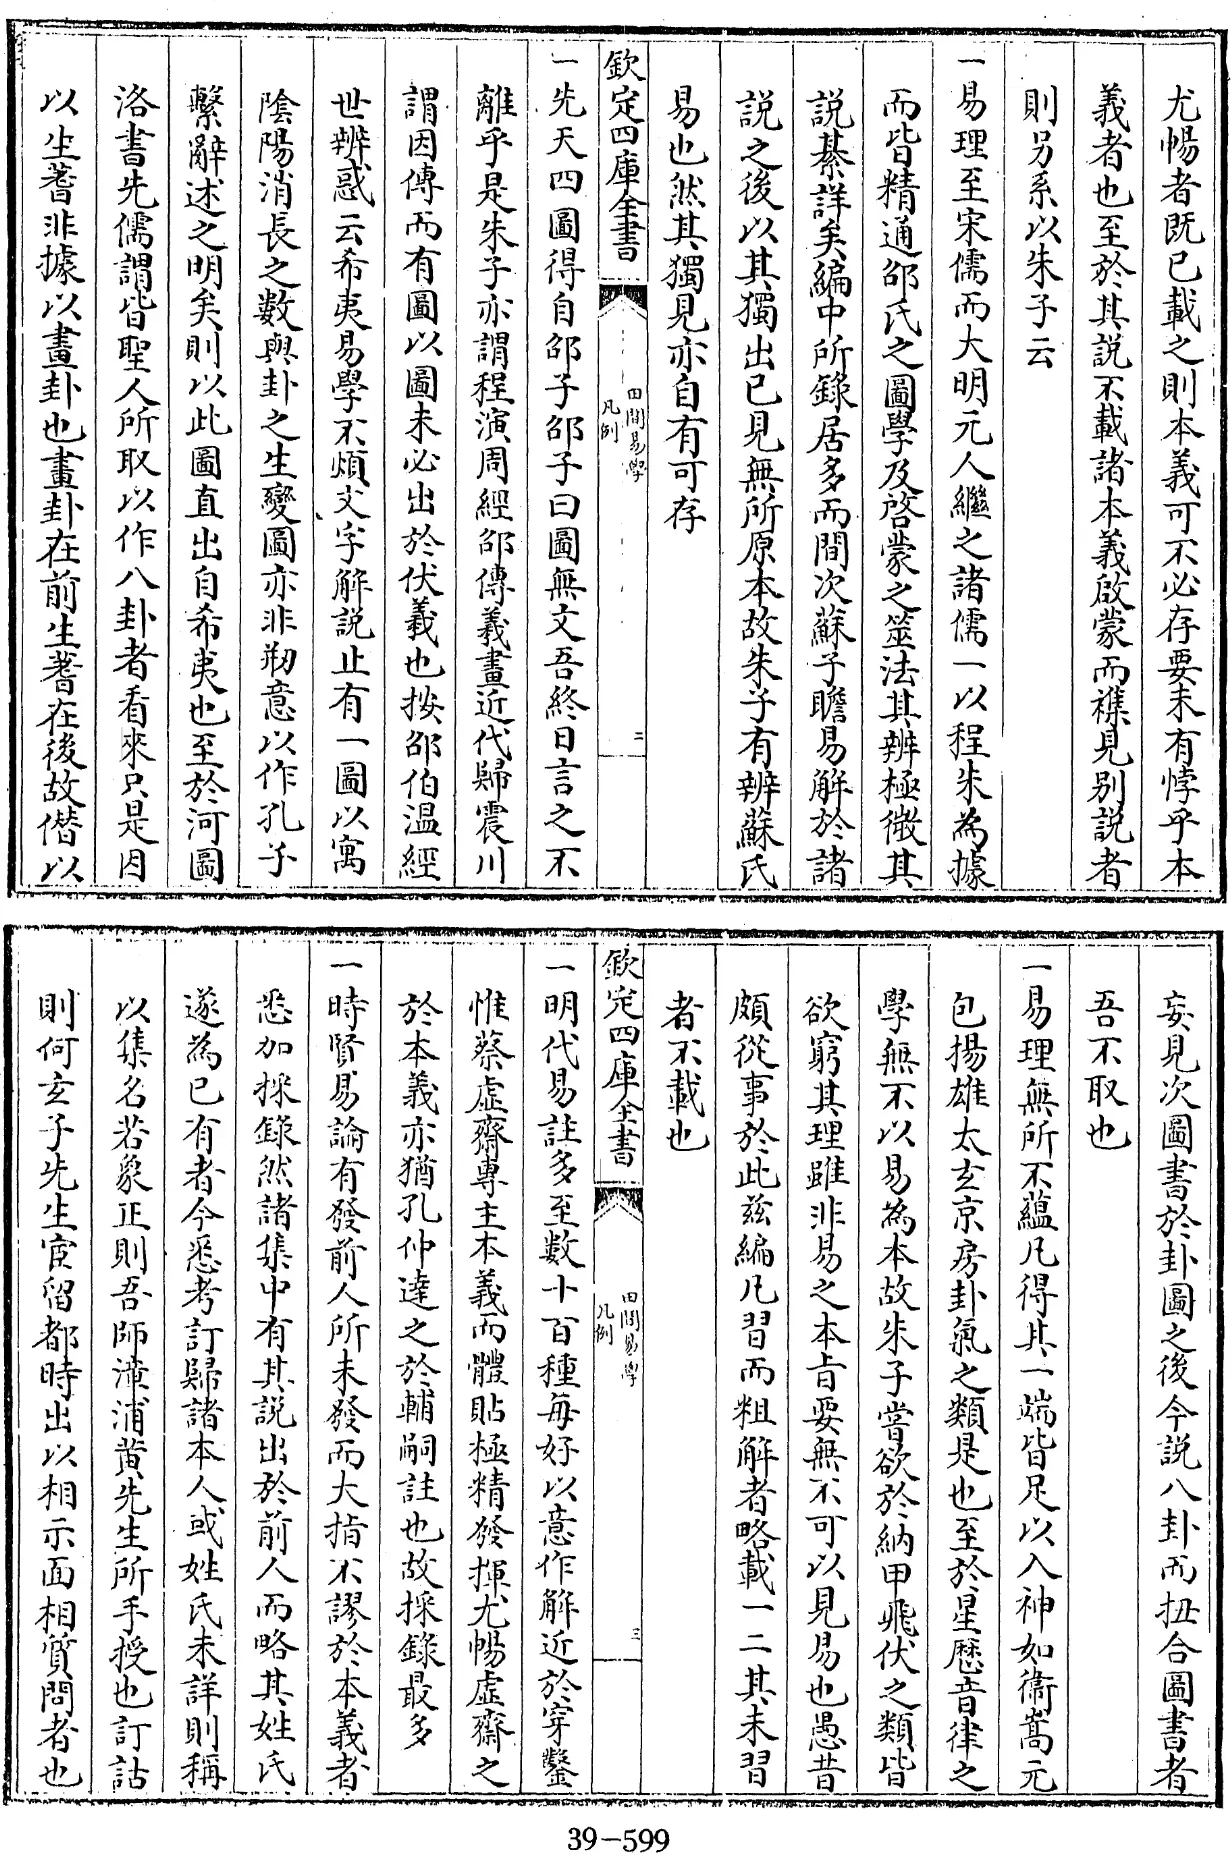 尤暢者既已載之則本義可不必存要未有悖乎本
義者也至於其説不載諸本義啟蒙而襍見别説者
則另系以朱子云
一易理至宋儒而大明元人繼之諸儒一以程朱為據
而皆精通邵氏之圖學及啓蒙之筮法其辨極微其
説綦詳矣編中所錄居多而間次蘇子瞻易解於諸
説之後以其獨出已見無所原本故朱子有辨蘇氏
易也然其獨見亦自有可存
欽定四庫全書
田間易學
凡例
二
一先天四圖得自邵子邵子曰圖無文吾終日言之不
離乎是朱子亦謂程演周經邵傳羲畫近代歸震川
謂因傳而有圖以圖未必出於伏羲也按邵伯温經
世辨惑云希夷易學不煩文字解説止有一圖以寓
陰陽消長之數與卦之生變圖亦非剏意以作孔子
繫辭述之明矣則以此圖直出自希夷也至於河圖
洛書先儒謂皆聖人所取以作八卦者看來只是因
以生蓍非據以畫卦也畫卦在前生蓍在後故僭以
妄見次圖書於卦圖之後今説八卦而扭合圖書者
吾不取也
一易理無所不蘊凡得其一端皆足以入神如衞嵩元
包揚雄太玄京房卦氣之類是也至於星歷音律之
學無不以易為本故朱子嘗欲於納甲飛伏之類皆
欲窮其理雖非易之本旨要無不可以見易也愚昔
頗從事於此兹編凡習而粗解者略載一二其未習
者不載也
欽定四庫全書
田間易學
凡例
三
一明代易註多至數十百種每好以意作解近於穿鑿
惟蔡虛齋專主本義而體貼極精發揮尤暢虛齋之
於本義亦猶孔仲達之於輔嗣註也故採錄最多
一時賢易論有發前人所未發而大指不謬於本義者
悉加採錄然諸集中有其説出於前人而略其姓氏
遂為已有者今悉考訂歸諸本人或姓氏未詳則稱
以集名若象正則吾師漳浦黄先生所手授也訂詁
則何玄子先生宦留都時出以相示面相質問者也
39-599